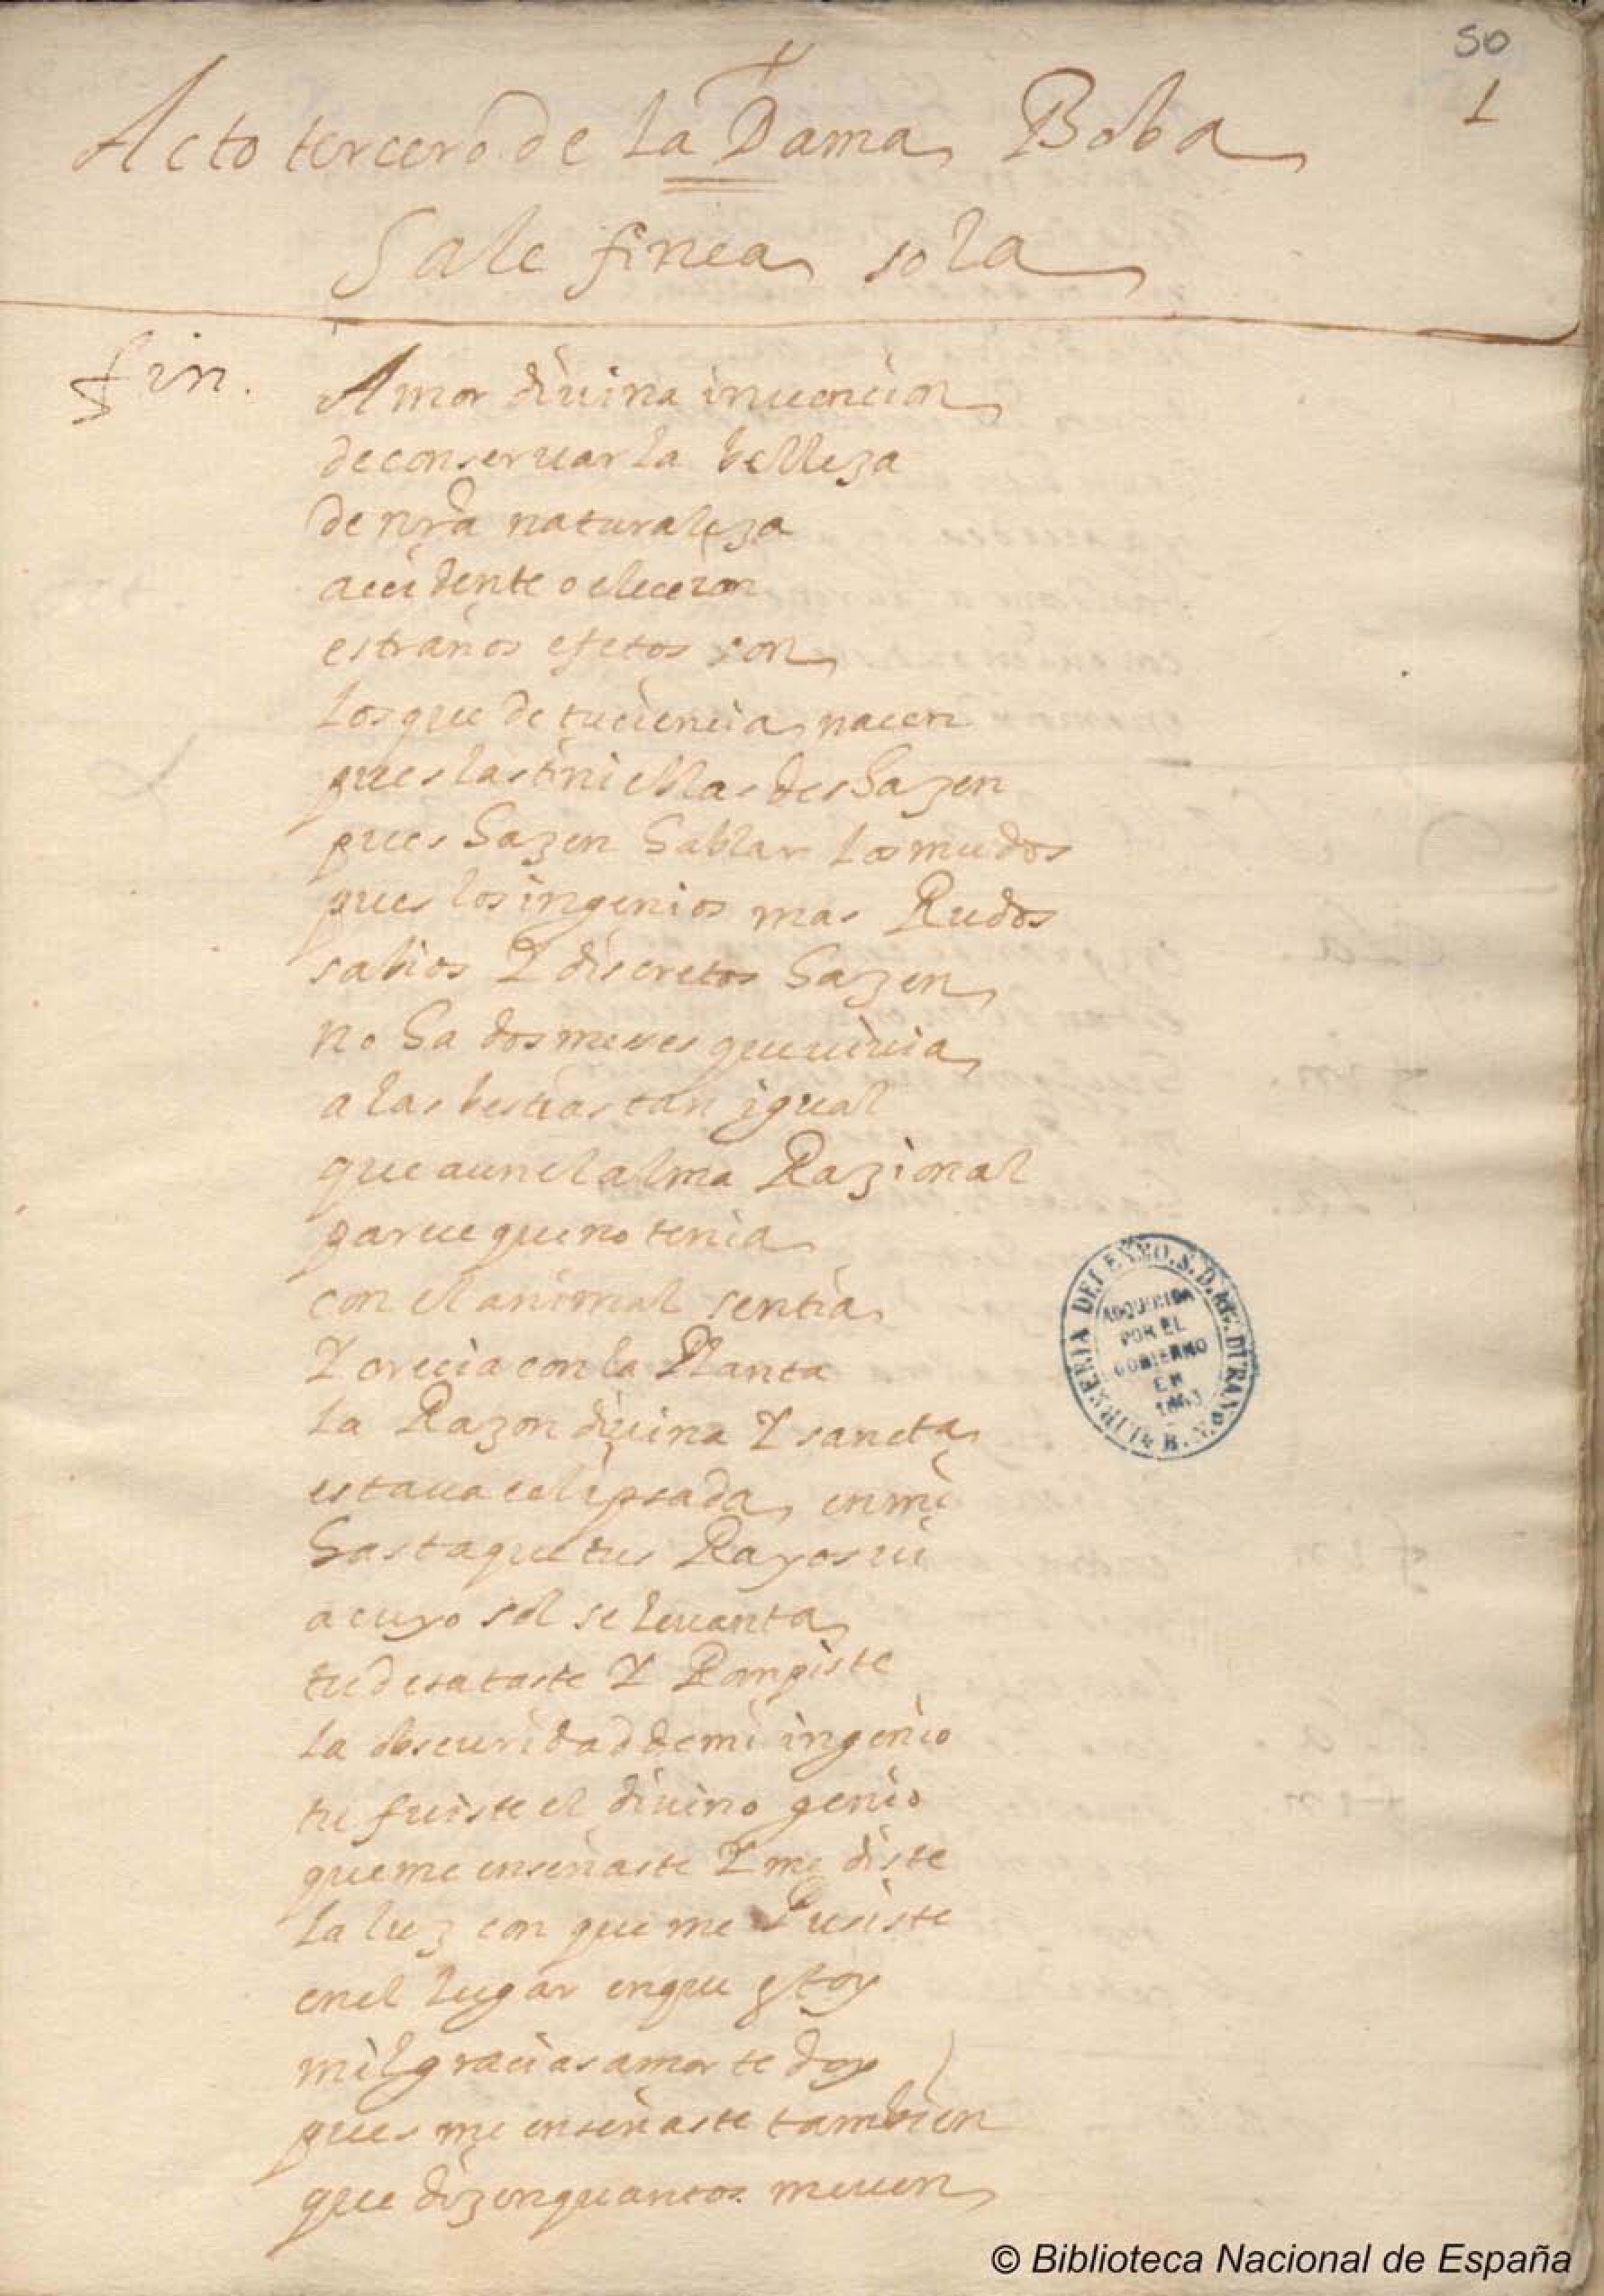 50
1
Acto tercero de la Dama Boba
Sale finea sola
fin.
Amor diuina inuencion
de conseruar la belleza
de nr̃a naturaleza
accidente o eleccion
estraños efetos son
los que de tu ciencia nacen
pues las tinieblas deshazen
pues hazen hablar los mudos
pues los ingenios mas Rudos
sabios y discretos hazen
no ha dos meses que uiuia
a las bestias tan igual
que aun el alma Razional
parece que no tenia
con el animal sentia
y crecia con la Planta
la Razon diuina y sancta
estaua eclipsada en mi
hasta que tus Rayos ui
a cuyo sol se leuanta
tu desataste y Rompiste
la obscuridad de mi ingenio
tu fuiste el diuino genio
que me enseñaste y me diste
la luz con que me Pusiste
en el lugar en que estoy
mil gracias amor te doy
pues me enseñaste tambien
que dizen quantos me uen
LIBRERIA DEL EXMO. S. D. AG. DURAN. B. N.
ADQUIRIDA
POR EL
GOBIERNO
EN
1863
© Biblioteca Nacional de España